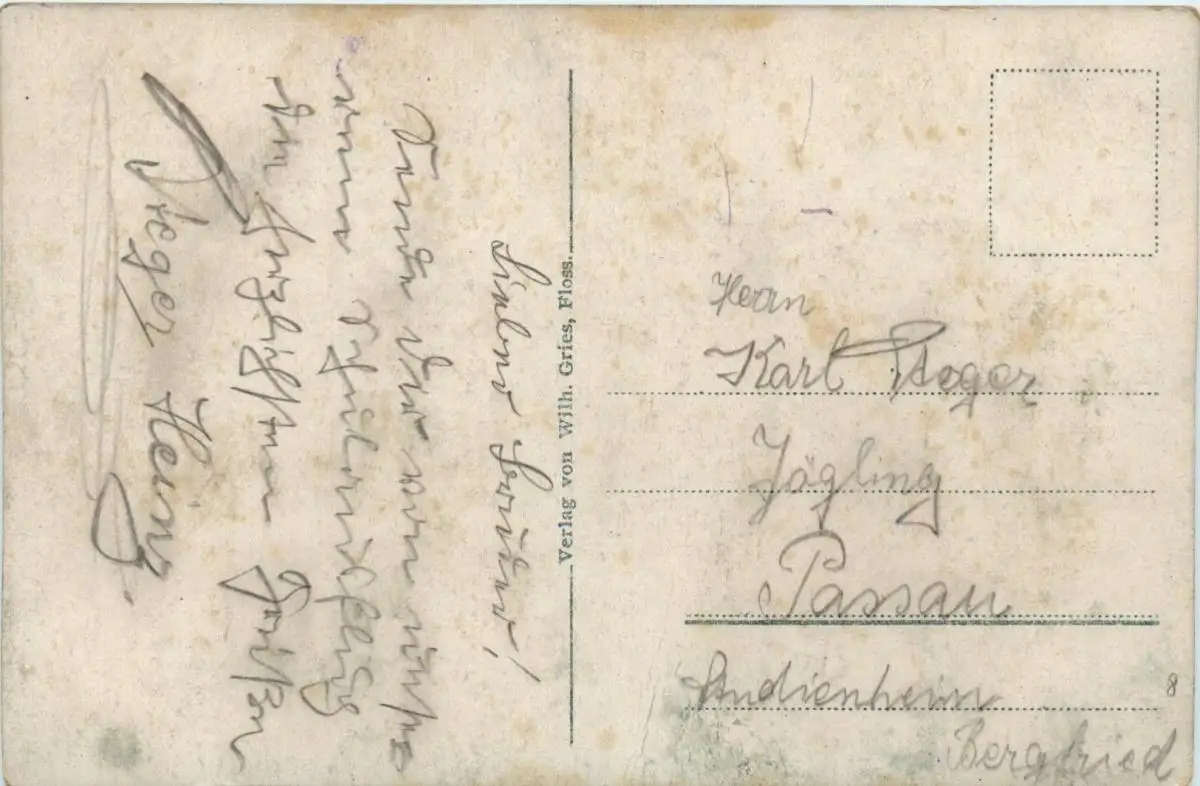 Lieber Bruder!
Sende dir von unse-
rem Schulausflug
die herzlichsten Grüßen
Steger Heinz
Verlag von Wilh. Gries, Floss.
Herrn
Karl Steger
Zögling
Passau
Studienheim
Bergfried
8